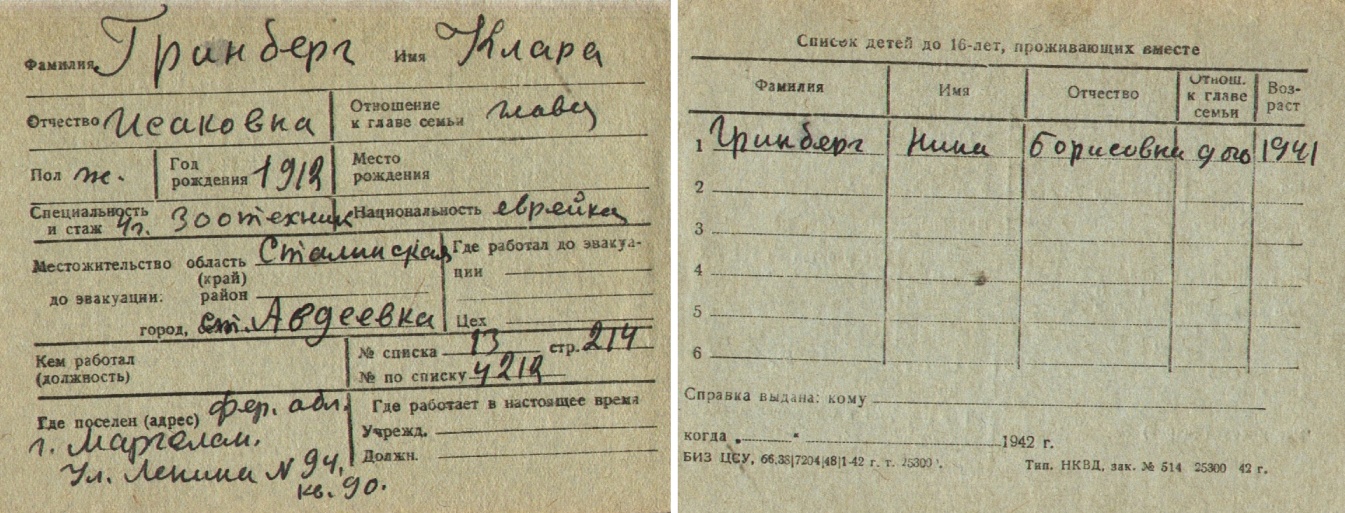 Фамилия Гринберг Имя Клара
Отчество Исаковна Отношение к главе семьи глава
Пол ж. Год рождения 1912 Место рождения
Специальность и стаж 4г. Зоотехник Национальность еврейка
Местожительство до эвакуации: область (край) Сталинская
район
город, ст. Авдеевка
Где работал до эвакуации
Цех
Кем работал (должность)
№ списка 13 стр. 214
№ по списку 4212
Где поселен (адрес) Фер. обл.
г. Маргелан.
Ул. Ленина N 94,
кв. 90.
Где работает в настоящее время
Учрежд.
Должн.
Список детей до 16-лет, проживающих вместе
Фамилия Имя Отчество Отнош. к главе семьи Возраст
1 Гринберг Нина Борисовна дочь 1941
2
3
4
5
6
Справка выдана: кому
когда „ " 1942 г.
БИЗ ЦСУ, 66,38|7204|48|1-42 г. т. 25300
Тип. НКВД, зак. № 514 25300 42 г.